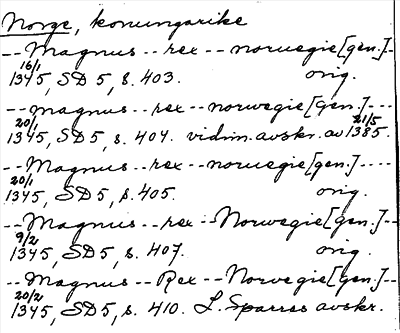 Norge, konungarike
--Magnus--rex--noruegie[gen.]--
16/1 1345, SD5, s. 403. orig.
--magnus--rex--norwegie[gen.]---
20/1 1345, SD5, s. 404. vidim. avskr. av 21/5 1385.
--Magnus--rex--noruegie[gen.]----
20/1 1345, SD5, s. 405. orig.
--Magnus--rex--Norwegie[gen.]--
9/2 1345, SD5, s. 407. orig.
--Magnus--Rex--Norwegie[gen.]--
20/2 1345, SD5, s. 410. L. Sparres avskr.